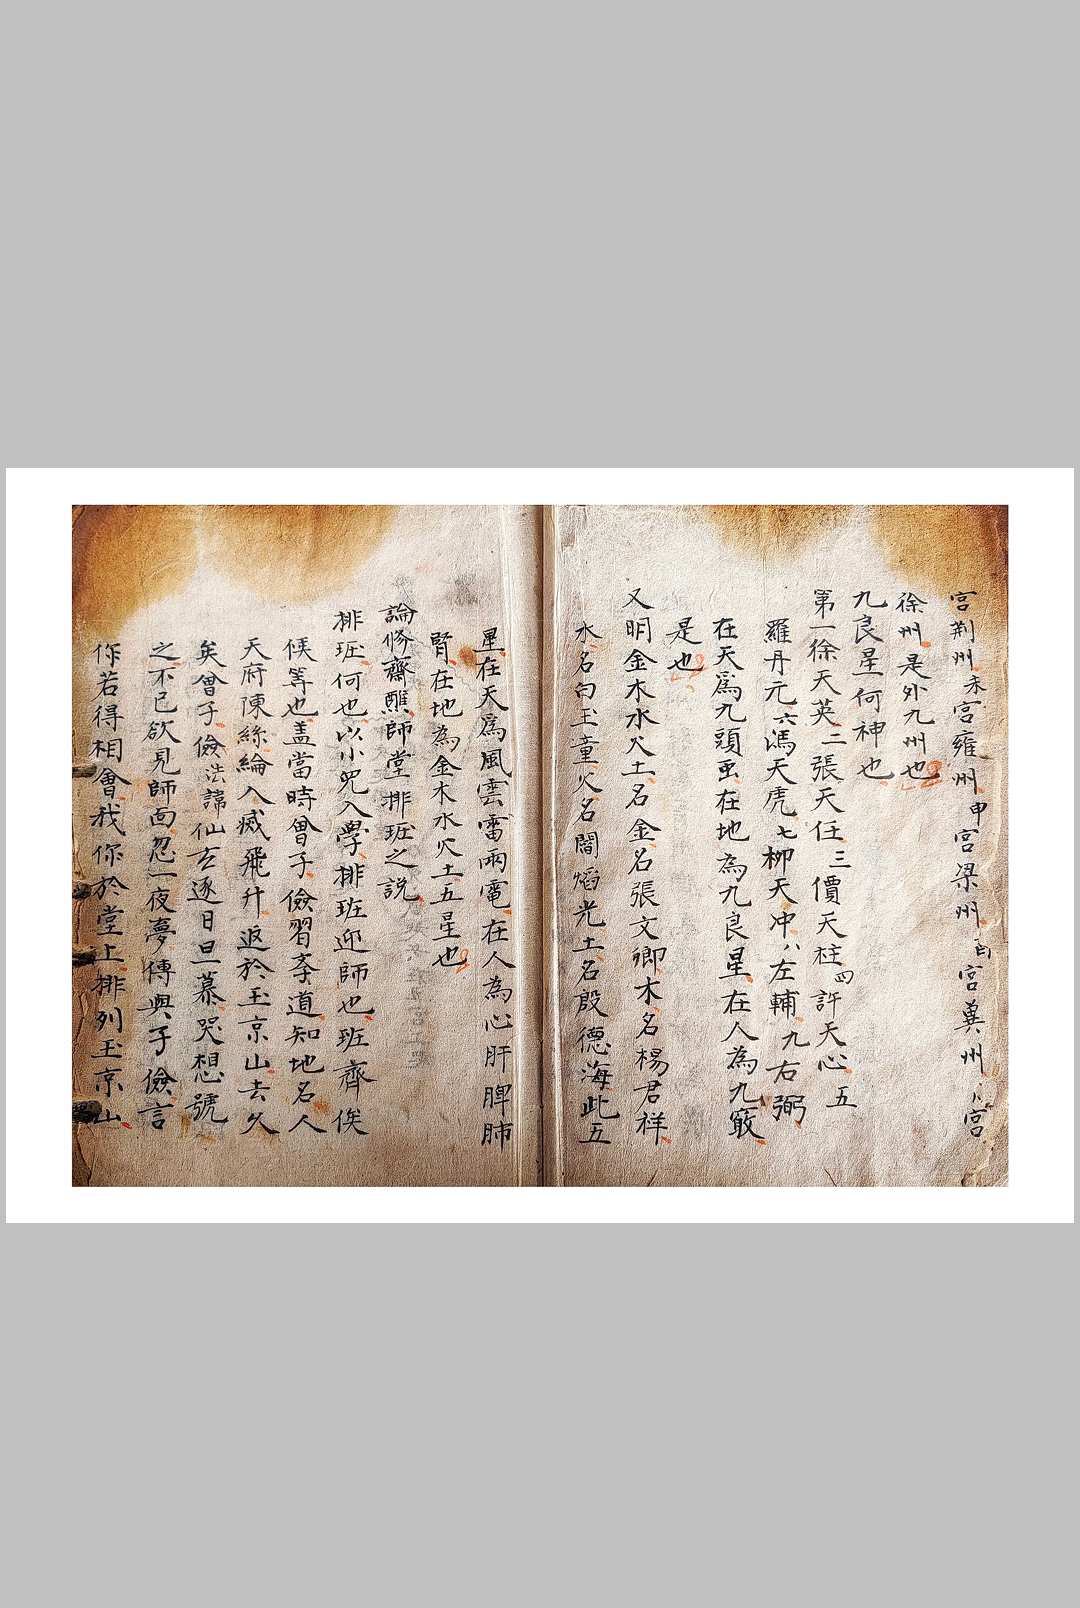 宮荆州未宮雍州申宮梁州酉宮冀州宮
徐州是外九州也
九良星何神也
第一徐天英二張天任三價天柱四許天心五
羅丹元六馮天虎七柳天冲八左輔九右弼
在天為九頭在地為九良星在人為九竅
是也
又明金木水火土名金名張文卿木名楊君祥
水名白玉童火名閻熖光土名殷德海此五
星在天爲風雲雷雨電在人為心肝脾肺
腎在地為金木水火土五星也
論修齋醮師堂排班之說
排班何也以小兒入學排班迎師也班齊俟
候等也盖當時曾子儉習李道知地名人
天府陳絲綸入滅飛升返於玉京山去久
矣曾子儉法諱仙玄逐日旦慕哭想號
之不已欲見師面忽一夜夢傳與子儉言
作若得相會我你於堂上排列玉京山